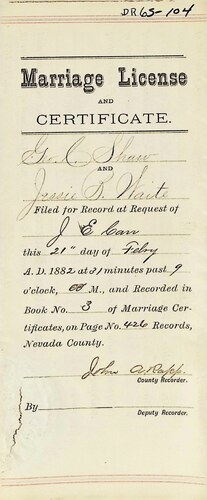 DR65-104
Marriage License
AND
CERTIFICATE.
Geo. C. Shaw
AND
Jessie D. Waite
Filed for Record at Request of
J E Carr
this 21" day of Feby
A. D. 1882 at 31 minutes past 9
o'clock, M., and Recorded in
Book No. 3 of Marriage Cer-
tificates, on Page No. 426 Records,
Nevada County.
John A. Rapp.
County Recorder.
By
Deputy Recorder.